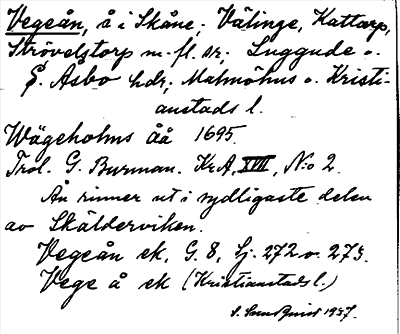 Vegeån, å i Skåne; Välinge, Kattarp,
Strövelstorp m. fl. sr. Luggude o.
S. Åsbo hdr, Malmöhus o. Kristi-
anstads l.
Wägeholms åå 1695.
Trol. G. Burman. Kr.A, XVII, N:o 2.
Ån rinner ut i sydligaste delen
av Skälderviken.
Vegeån ek, G. 8, Sj. 272 o. 273.
Vege å ek (Kristianstads l.)
S. 1937.